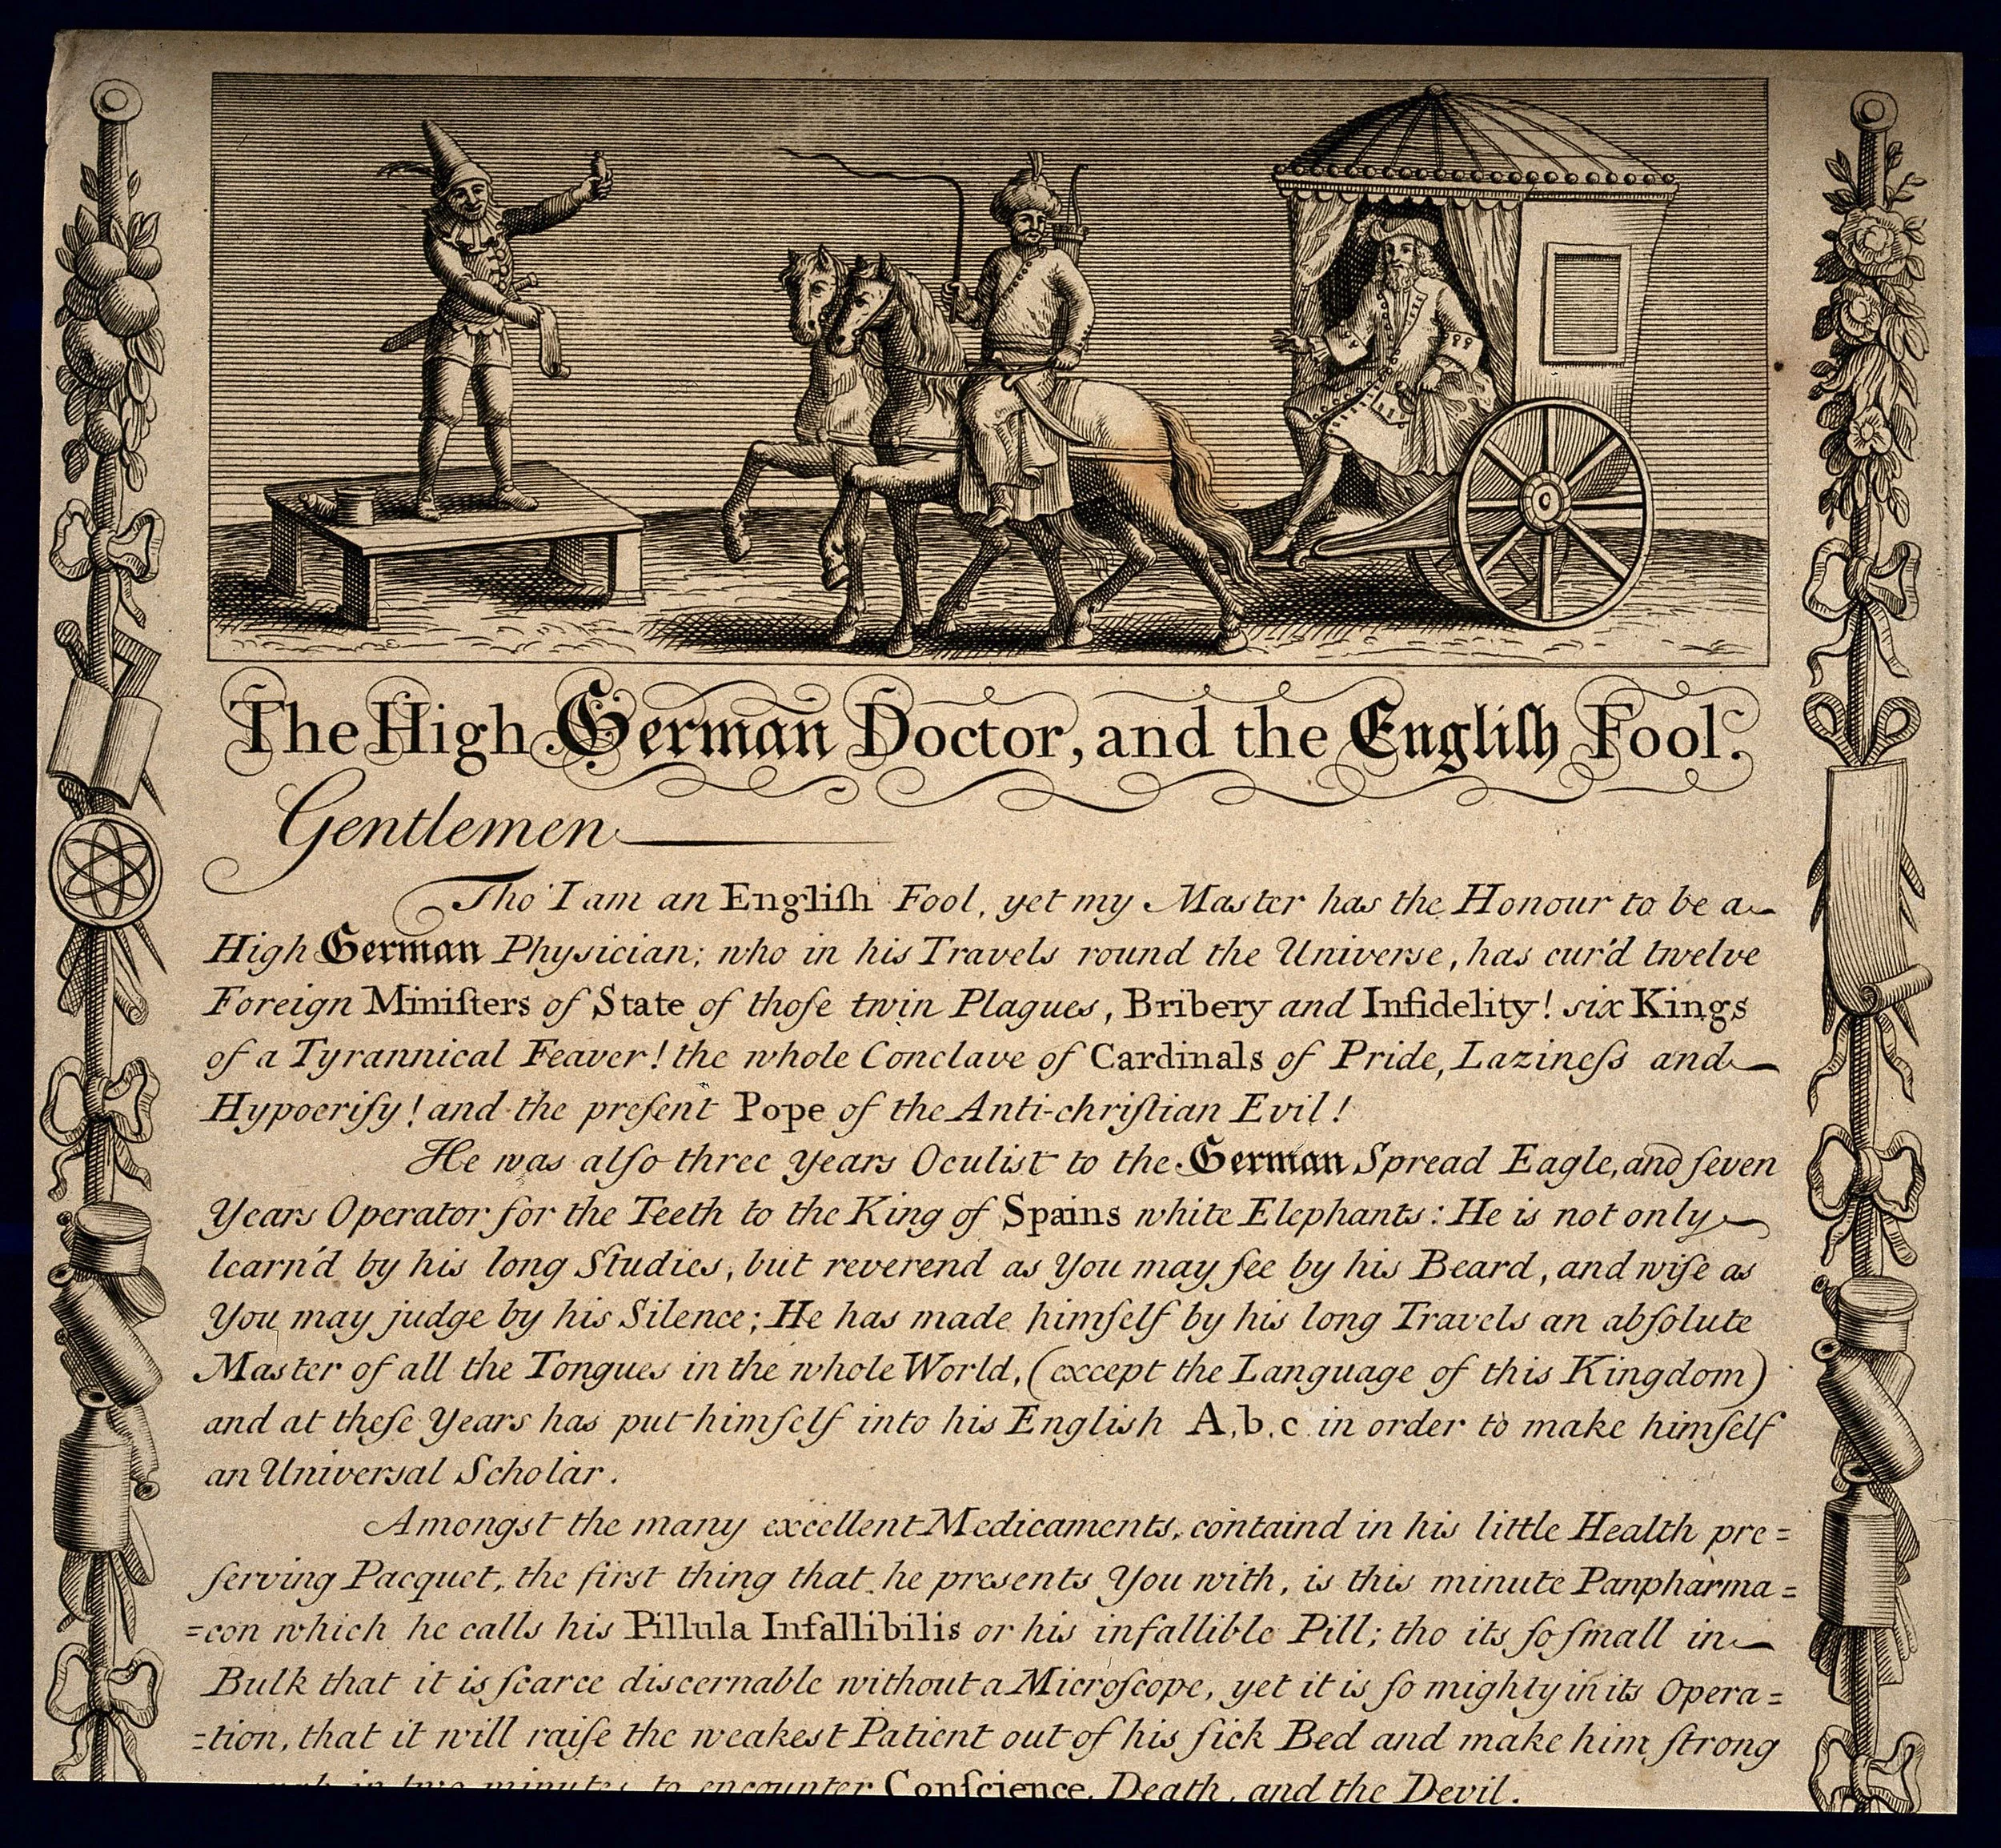 The High German Doctor, and the Engliſh Fool.
Gentlemen
Tho' I am an Engliſh Fool, yet my Master has the Honour to be a
High German Physician; who in his Travels round the Universe, has cur'd twelve
Foreign Miniſters of State of thoſe twin Plagues, Bribery and Infidelity! six Kings
of a Tyrannical Feaver! the whole Conclave of Cardinals of Pride, Lazineſs and
Hypocriſy! and the preſent Pope of the Anti-chriſtian Evil!
He was alſo three years Oculist to the German Spread Eagle, and ſeven
Years Operator for the Teeth to the King of Spains white Elephants: He is not only
learn'd by his long Studies, but reverend as You may ſee by his Beard, and wiſe as
You may judge by his Silence; He has made himſelf by his long Travels an abſolute
Master of all the Tongues in the whole World, (except the Language of this Kingdom)
and at theſe Years has put himſelf into his English A, b, c in order to make himſelf
an Universal Scholar.
Amongst the many excellent Medicaments, containd in his little Health pre=
ſerving Pacquet, the first thing that he presents You with, is this minute Panpharma=
=con which he calls his Pillula Infallibilis or his infallible Pill; tho its ſo ſmall in
Bulk that it is ſcarce discernable without a Microſcope, yet it is ſo mighty in its Opera=
=tion, that it will raiſe the weakest Patient out of his ſick Bed and make him ſtrong
in two minutes to encounter Conſcience, Death, and the Devil.